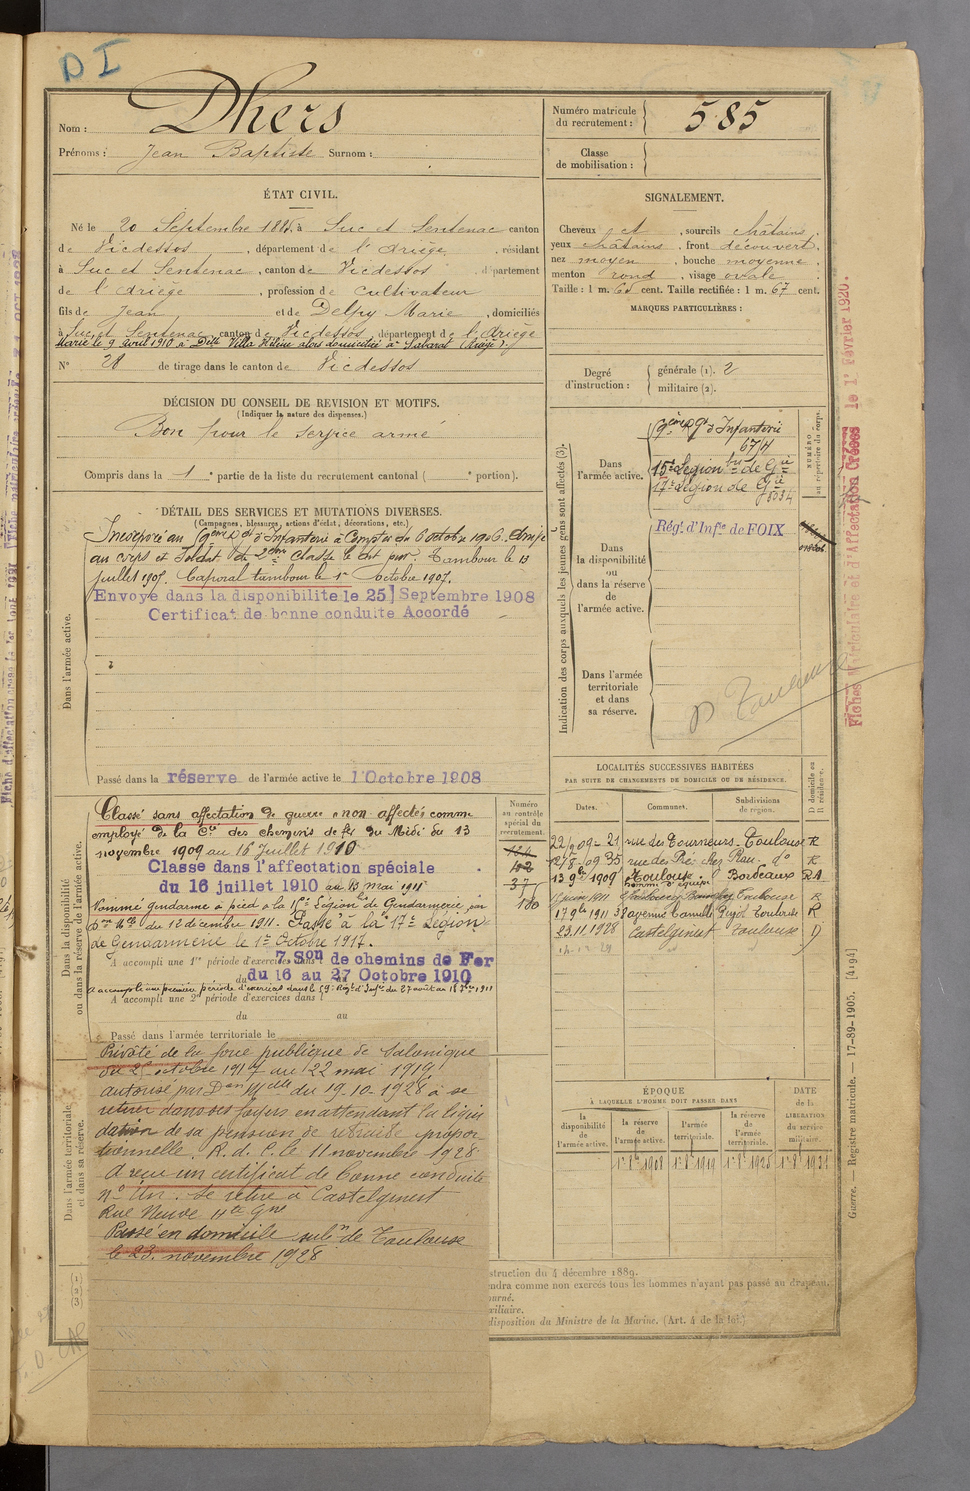 D I
Nom : Dhers
Prénoms : Jean Baptiste Surnom :
Numéro matricule
du recrutement : 585
Classe
de mobilisation :
ÉTAT CIVIL.
Né le 20 Septembre 1885, à Suc et Sentenac canton
de Vicdessos , département de l'Ariège , résidant
à Suc et Sentenac , canton de Vicdessos département
de l'Ariège , profession de cultivateur
fils de Jean et de Delpy Marie , domiciliés
à Suc et Sentenac canton de Vicdessos, département de l'Ariège
Marié le 9 avril 1910 à Delle Villa Hélène alors domicilié à Sabarat (Ariège).
N° 28 de tirage dans le canton de Vicdessos
SIGNALEMENT.
Cheveux et , sourcils châtains,
yeux châtains , front découvert,
nez moyen , bouche moyenne ,
menton rond , visage ovale .
Taille : 1 m. 65 cent. Taille rectifiée : 1 m. 67 cent.
MARQUES PARTICULIÈRES :
Degré
d'instruction :
générale (1). 2
militaire (2).
DÉCISION DU CONSEIL DE REVISION ET MOTIFS.
(Indiquer la nature des dispenses.)
Bon pour le service armé
Compris dans la 1 e partie de la liste du recrutement cantonal ( e portion).
DÉTAIL DES SERVICES ET MUTATIONS DIVERSES.
(Campagnes, blessures, actions d'éclat, décorations, etc.)
Incorporé au 59ème Rgt d'Infanterie à compter du 6 octobre 1906. Arrivé
au corps et Soldat de 2ème classe le dit jour. Tambour le 13
juillet 1907. Caporal tambour le 1er Octobre 1907.
Envoyé dans la disponibilite le 25 Septembre 1908
Certificat de bonne conduite Accordé
Dans l'armée active.
Passé dans la réserve de l'armée active le 1 Octobre 1908
Indication des corps auxquels les jeunes gens sont affectés (3).
Dans
l'armée active.
59ème Rgt d'Infanterie
6714
15e Légion bis de Gie
17e Légion de Gie
5034
NUMÉRO
au répertoire du corps.
Dans
la disponibilité
ou
dans la réserve
de
l'armée active.
Régt d'Infie de FOIX
Dans l'armée
territoriale
et dans
sa réserve.
D Toulouse
Classé sans affectation de guerre "non affectés" comme
employé de la Cie des chemins de fer du Midi du 13
novembre 1909 au 16 Juillet 1910
Classé dans l'affectation spéciale
du 16 juillet 1910 au 13 mai 1911
Nommé gendarme à pied à la 15e Légion de Gendarmerie par
Don Mlle du 12 décembre 1911. Passé à la 17e Légion
de Gendarmerie le 1er Octobre 1917.
A accompli une 1re période d'exercices dans 7 Son de chemins de Fer
du 16 au 27 Octobre 1910
A accompli une première période d'exercices dans le 59e Régt d'Infie du 27 août au
A accompli une 2e période d'exercices dans l
du au
Passé dans l'armée territoriale le
Dans la disponibilité
ou dans la réserve de l'armée active.
Numéro
au contrôle
spécial du
recrutement.
LOCALITÉS SUCCESSIVES HABITÉES
PAR SUITE DE CHANGEMENTS DE DOMICILE OU DE RÉSIDENCE.
Dates. Communes. Subdivisions
de région. D domicile ou
R résidence.
22/9 09 21 rue des Tourneurs Toulouse R
12/8-09 35 rue des d° R
13 9bre 1909 Toulouse Bordeaux RA
Toulouse R
17 9bre 1911 38 avenue Camille Pujol Toulouse R
23.11.1928 Castelginest Toulouse D
Prévôté de la force publique de Salonique
du 25 octobre 1917 au 22 mai 1919
autorisé par Don Mlle du 19-10-1928 à se
retirer dans ses foyers en attendant la liqui
dation de sa pension de retraite propor-
tionnelle. R. d. C. le 11 novembre 1928
A reçu un certificat de bonne conduite
n° Un. Se retire à Castelginest
Rue Neuve Hte Gne
Passé en domicile subon de Toulouse
le 23 novembre 1928
Dans l'armée territoriale
et dans sa réserve.
ÉPOQUE
À LAQUELLE L'HOMME DOIT PASSER DANS
la
disponibilité
de
l'armée active.
la réserve
de
l'armée active.
l'armée
territoriale.
la réserve
de
l'armée
territoriale.
DATE
de la
LIBÉRATION
du service
militaire.
(1)
(2)
(3)
struction du 4 décembre 1889.
endra comme non exercés tous les hommes n'ayant pas passé au drapeau.
ourné.
xiliaire.
disposition du Ministre de la Marine. (Art. 4 de la loi.)
Guerre. — Registre matricule. — 17-89-1905. [4194]
Fiches Matriculaire et d'Affectation Créées le 1r Février 1920.